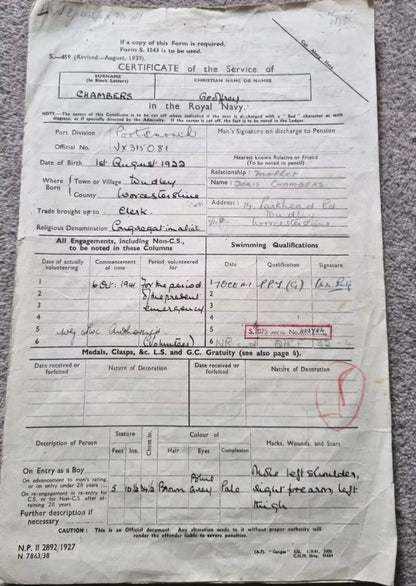 If a copy of this Form is required,
Form S. 1243 is to be used.
S.—459 (Revised—August, 1939).
CERTIFICATE of the Service of
SURNAME
(In Block Letters)
CHRISTIAN NAME OR NAMES
CHAMBERS
Geoffrey
in the Royal Navy.
NOTE.—The corner of this Certificate is to be cut off where indicated if the man is discharged with a "Bad" character or with
disgrace, or if specially directed by the Admiralty. If the corner is cut off, the fact is to be noted in the Ledger.
Port Division
Portsmouth
Man's Signature on discharge to Pension
Official No.
JX315081
Date of Birth
1st August 1922
Nearest known Relative or Friend
(To be noted in pencil)
Where Born
Town or Village
Dudley
County
Worcestershire
Relationship:
Mother
Name:
Doris CHAMBERS
Address:
Parkhead Rd
Dudley
Worcestershire
Trade brought up to
Clerk.
Religious Denomination
Congregationalist
All Engagements, including Non-C.S.,
to be noted in these Columns
Swimming Qualifications
Date of actually
volunteering
Commencement
of time
Period volunteered
for
Date
Qualification
Signature
1
6 Oct. 1941
For the period
1
2
of the present
2
3
emergency
3
4
4
5
(Volunteer)
5
6
6
Medals, Clasps, &c. L.S. and G.C. Gratuity (see also page 4).
Date received or
forfeited
Nature of Decoration
Date received or
forfeited
Nature of Decoration
Description of Person
Stature
Feet
Ins.
Chest In.
Colour of
Hair
Eyes
Complexion
Marks, Wounds, and Scars
On Entry as a Boy
On advancement to man's rating,
or on entry under 28 years
5
Brown
Blue
Grey
Pale
Mole left shoulder,
right forearm, left
thigh
On re-engagement or re-entry for
C.S. or for Non-C.S. after at-
taining 28 years
Further description if
necessary
CAUTION :—This is an Official Document. Any alteration made to it without proper authority will
render the offender liable to severe penalties.
N.P. II 2892/1927
N 7863/38